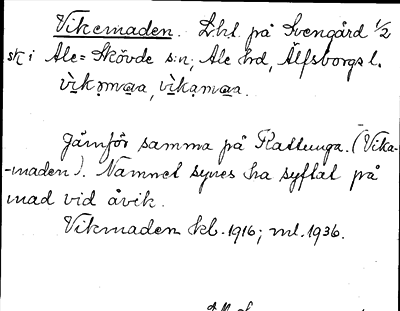 Vikemaden. Lhl. på Svengård 1/2
sk i Ale-Skövde s:n, Ale hrd, Älfsborgs l.
vìkəmaa, vìkamaa.
Jämför samma på Kattunga. (Vika-
-maden). Namnet synes ha syftat på
mad vid åvik.
Vikmaden kb. 1916; ml. 1936.